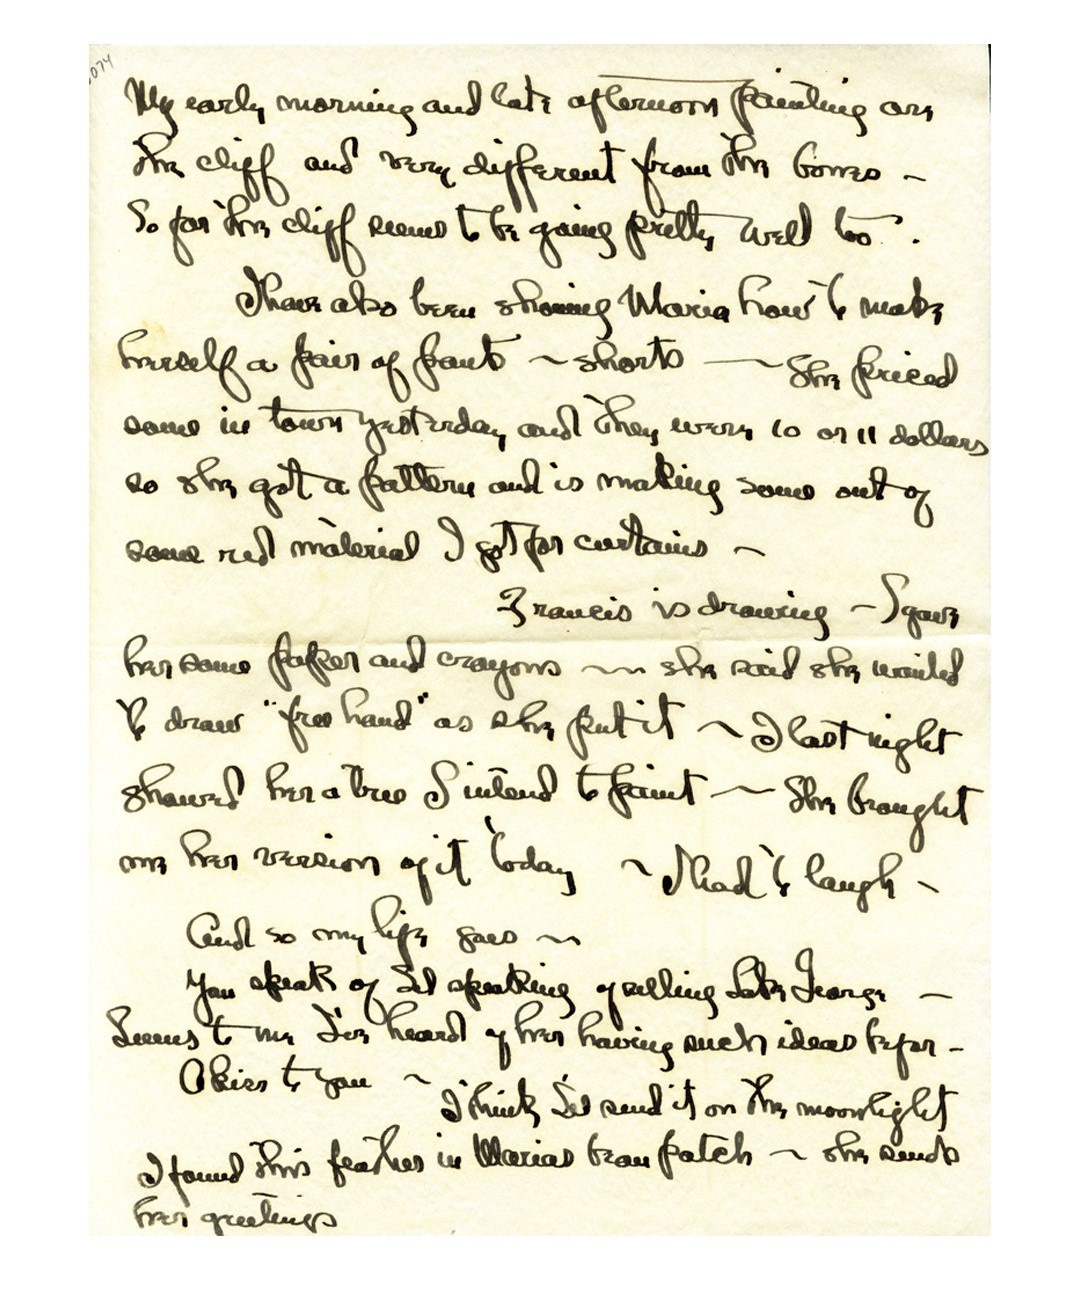 074
My early morning and late afternoon painting are
the cliff and very different from the bones ~
So far the cliff seems to be going pretty well too.
I have also been showing Maria how to make
herself a pair of pants ~ shorts — She priced
some in town yesterday and they were 10 or 11 dollars
so she got a pattern and is making some out of
some red material I got for curtains ~
Francis is drawing ~ I gave
her some paper and crayons ~ she said she wanted
to draw "free hand" as she put it ~ I last night
showed her a tree I intend to paint ~ She brought
me her version of it today ~ I had to laugh ~
And so my life goes ~
You speak of Sel speaking of selling Lake George —
Seems to me I've heard of her having such ideas befor -
A kiss to you ~
I think I'll send it on the moonlight
I found this feather in Marias bean patch ~ she sends
her greetings